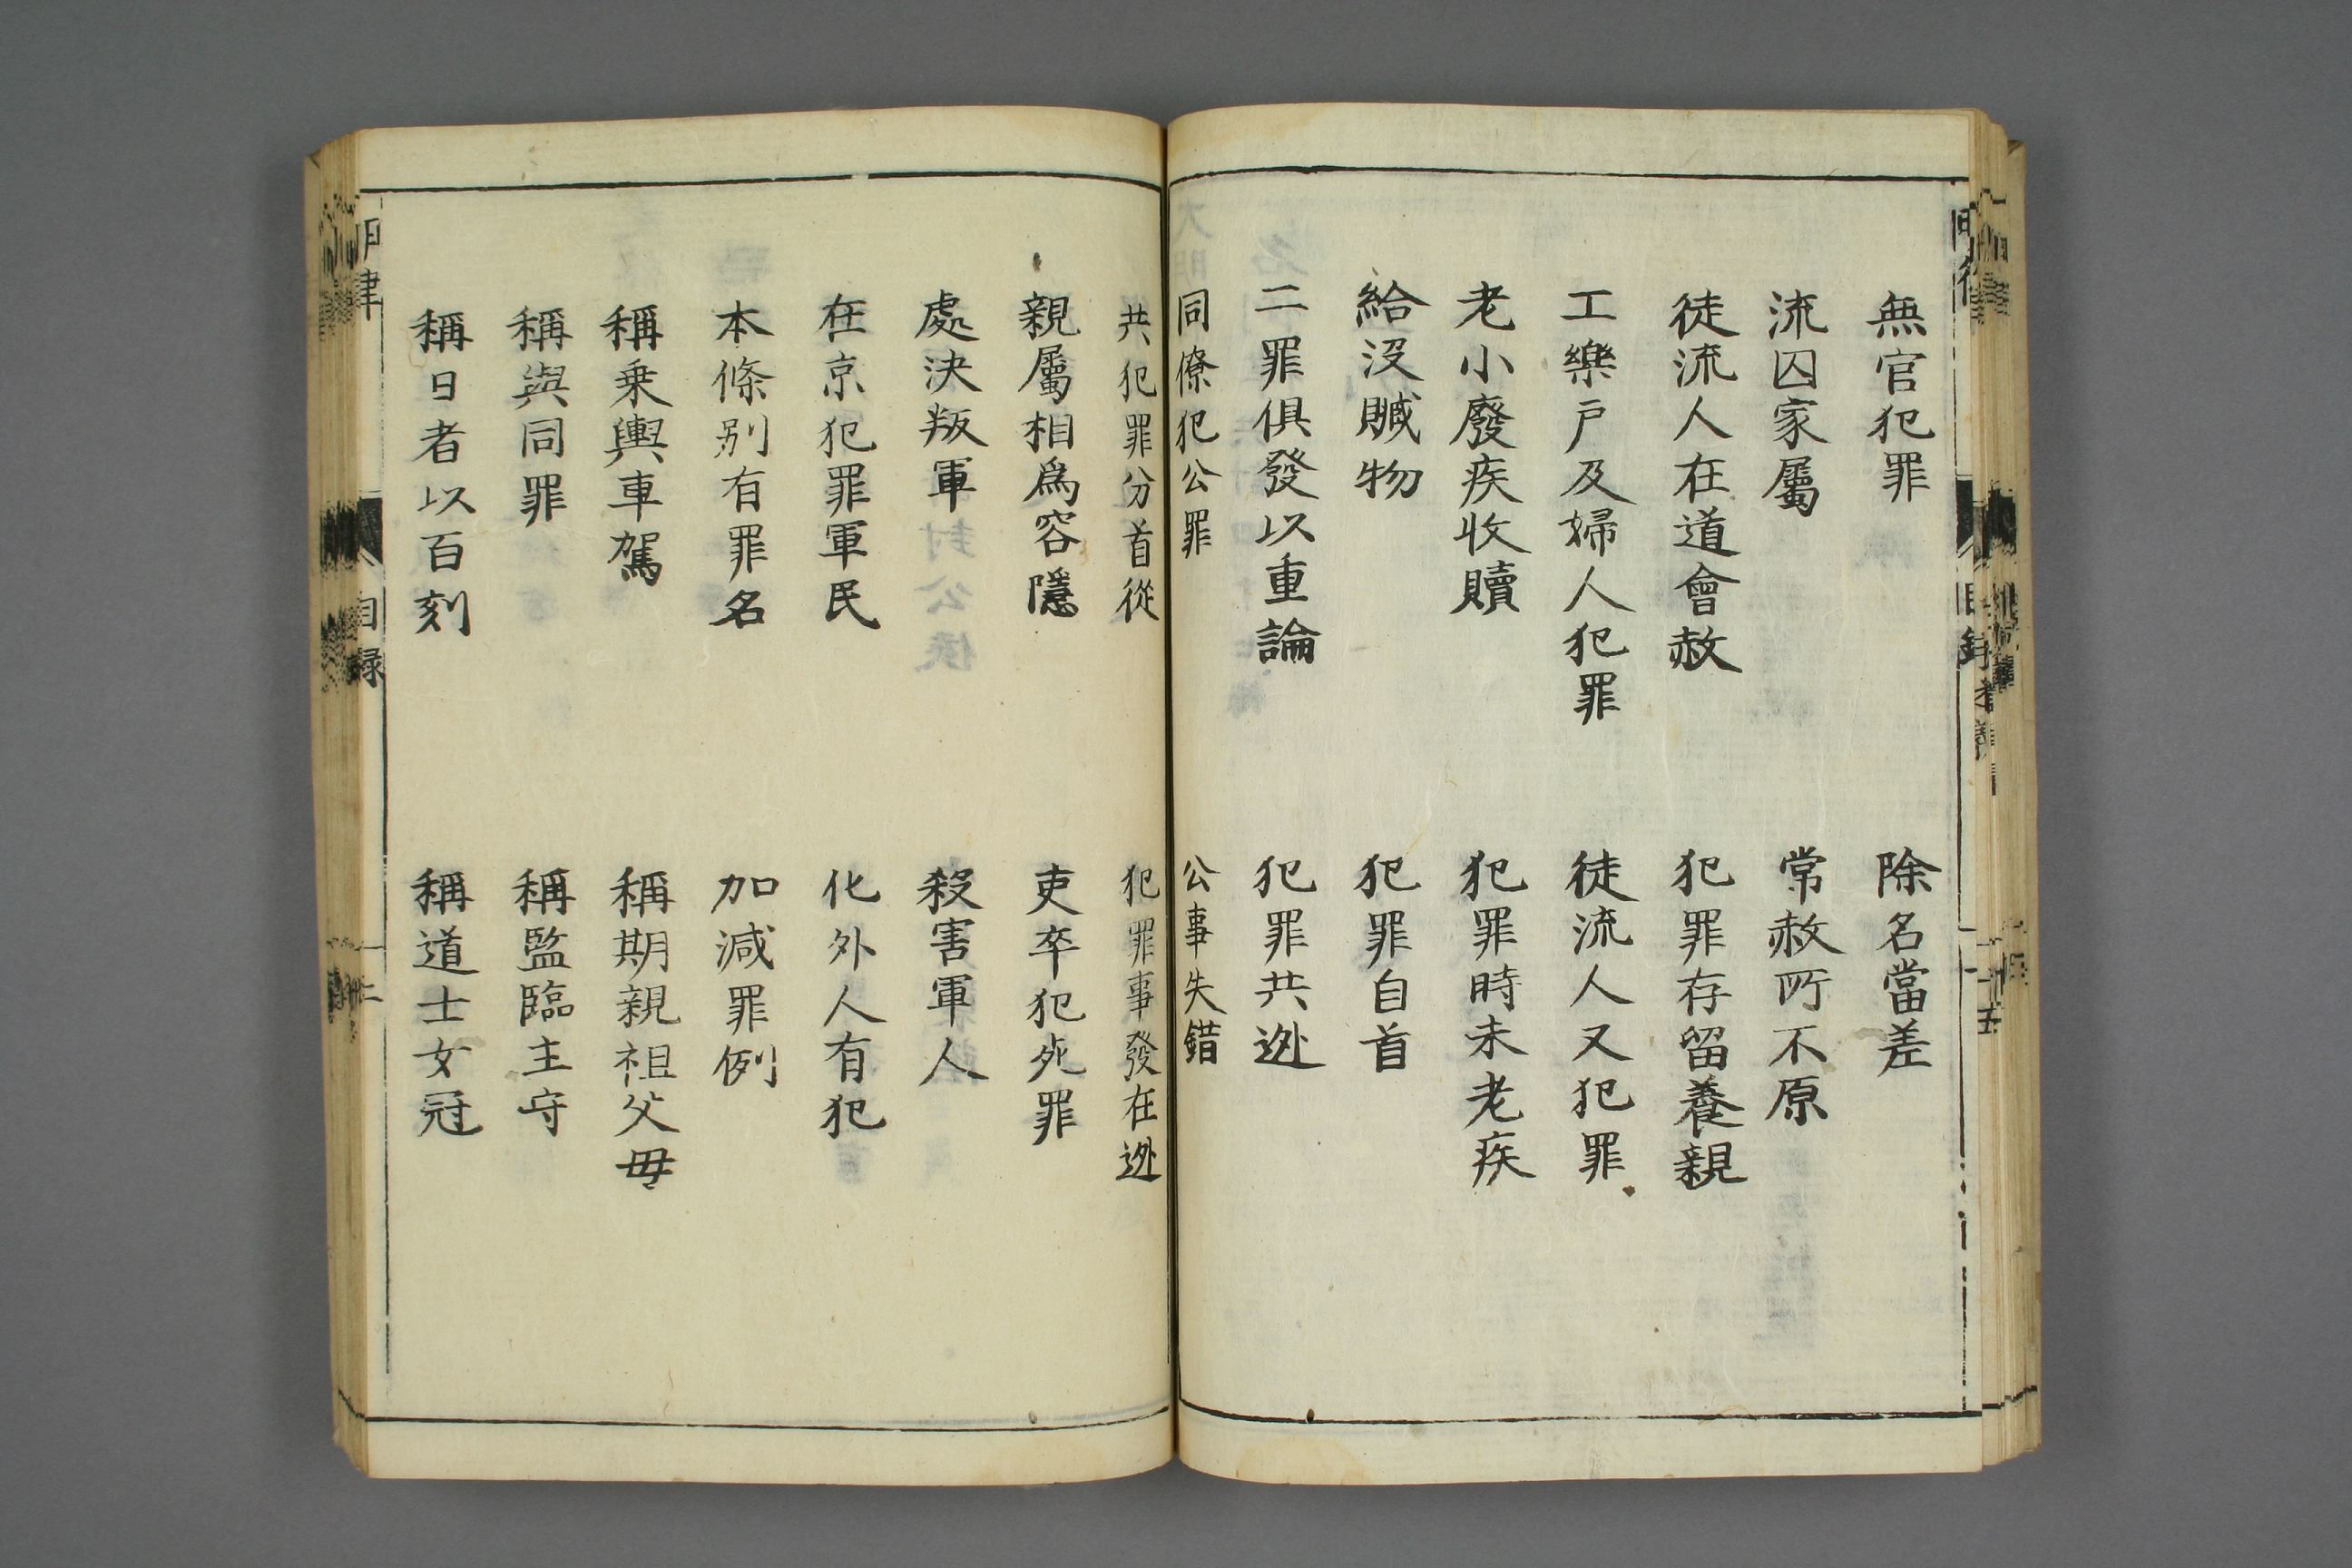 無官犯罪　除名當差
流囚家屬　常赦所不原
徒流人在道會赦　犯罪存留養親
工樂户及婦人犯罪　徒流人又犯罪
老小廢疾收贖　犯罪時未老疾
給没贓物　犯罪自首
二罪俱發以重論　犯罪共逃
同僚犯公罪　公事失錯
共犯罪分首從　犯罪事發在逃
親屬相爲容隱　吏卒犯死罪
處決叛軍　殺害軍人
在京犯罪軍民　化外人有犯
本條别有罪名　加減罪例
稱乗輿車駕　稱期親祖父母
稱與同罪　稱監臨主守
稱日者以百刻　稱道士女冠
明律　目録